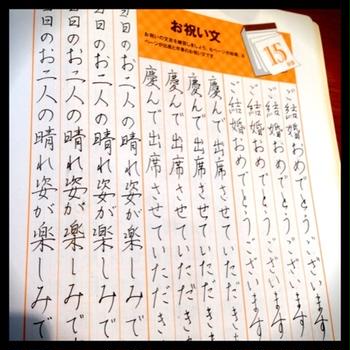 お祝い文
15
ご結婚おめでとうございます
ご結婚おめでとうございます
ご結婚おめでとうございます
慶んで出席させていただき
慶んで出席させていただき
慶んで出席させていただき
慶んで出席させていただき
日のお二人の晴れ姿が楽しみで
日のお二人の晴れ姿が楽しみで
日のお二人の晴れ姿が楽しみで
日のお二人の晴れ姿が楽しみで